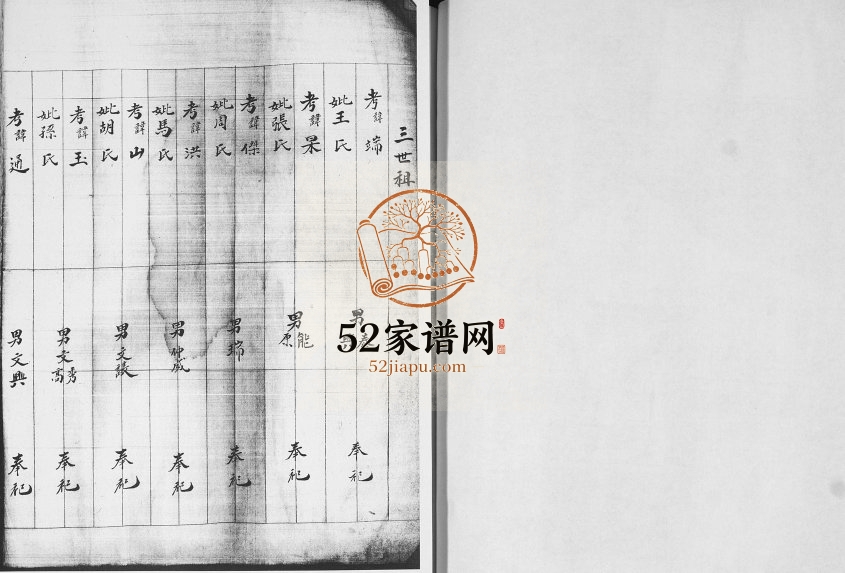 三世祖
考諱端
妣王氏
男
奉祀
考諱杲
妣張氏
男能原
奉祀
考諱傑
妣周氏
男瑞
奉祀
考諱洪
妣馬氏
男仲威
奉祀
考諱山
妣胡氏
男文
奉祀
考諱玉
妣孫氏
男文秀高
奉祀
考諱通
男文興
奉祀
52家谱网
52jiapu.com